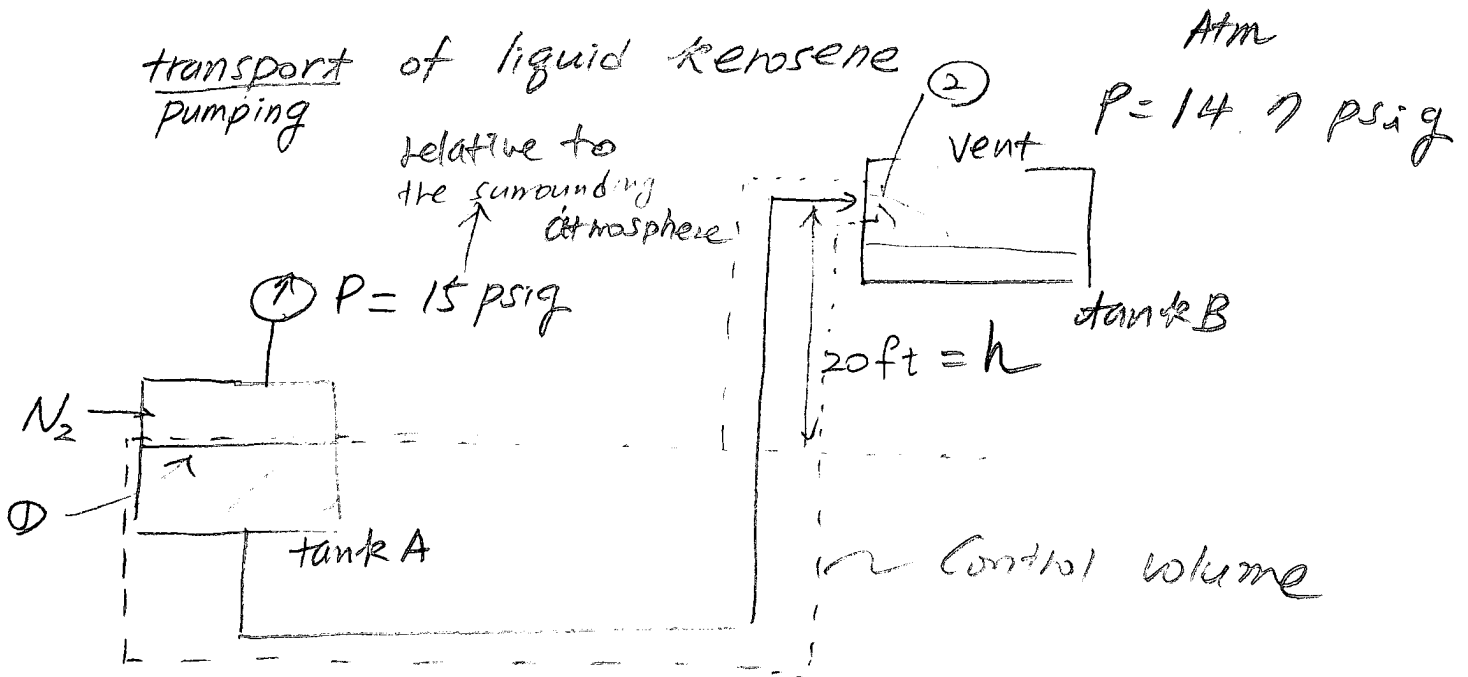 transport of liquid kerosene
pumping
Atm
P = 14.7 psig
②
vent
relative to
the surrounding
atmosphere
P = 15 psig
tank B
20ft = h
N₂
①
tank A
Control volume